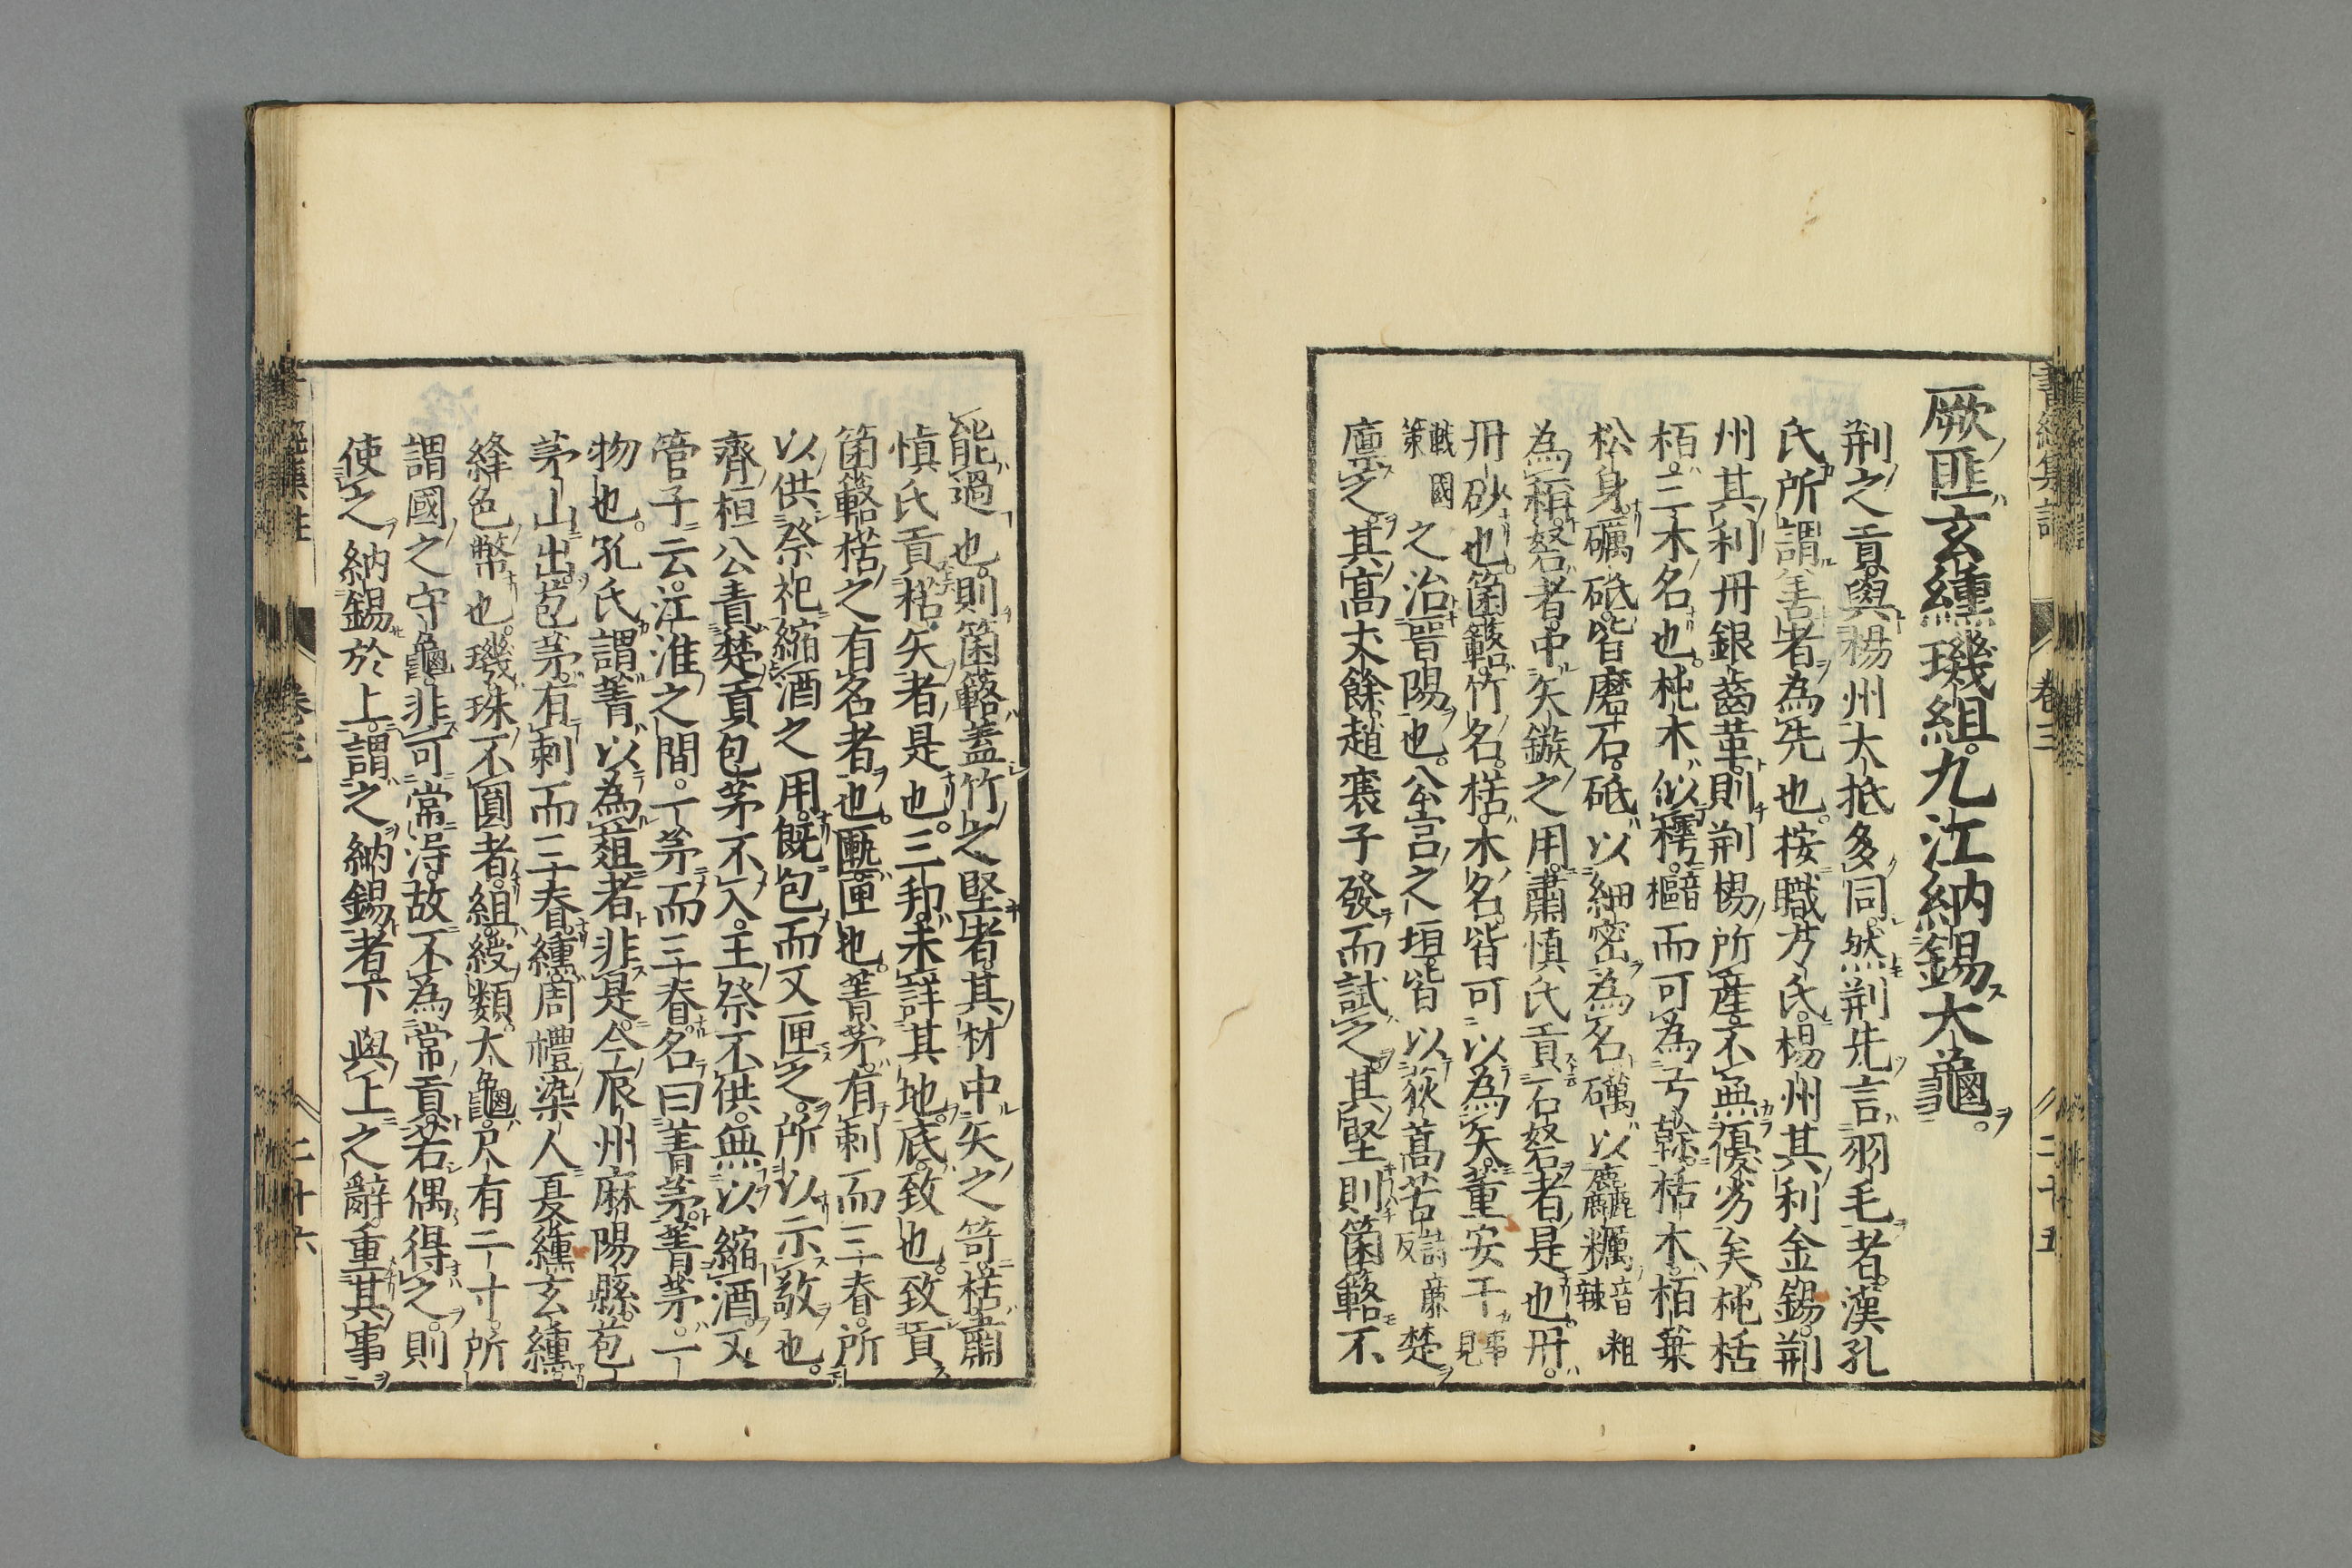 厥匪玄纁璣組九江納錫大龜
荆之貢與楊州大抵多同然荆先言羽毛者漢孔
氏所謂善者為先也按職方氏楊州其利金錫荆
州其利丹銀齒革則荆楊所產不無優劣矣杶栝
栢三木名也杶木似樗樞音而可為弓幹栝木栢葉
松身礪砥皆磨石砥以細密為名礪以麤糲音辣粗
為稱砮者中矢鏃之用肅慎氏貢石砮者是也丹
丹砂也箘簵竹名楛木名皆可以為矢董安于事見
戰國策之治晉陽也公宮之垣皆以荻蒿苫詩廉反楚
廩之其高丈餘趙襄子發而試之其堅則箘簵不
能過也則箘簵蓋竹之堅者其材中矢之笴楛肅
慎氏貢楛矢者是也三邦未詳其地底致也致貢
箘簵楛之有名者也匭匣也菁茅有刺而三脊所
以供祭祀縮酒之用既包而又匣之所以示敬也
齊桓公責楚貢包茅不入王祭不供無以縮酒又
管子云江淮之間一茅而三脊名曰菁茅菁茅一
物也孔氏謂菁以為葅者非是今辰州麻陽縣苞
茅山出苞茅有刺而三脊纁周禮染人夏纁玄纁
絳色幣也璣珠不圓者組綬類大龜尺有二寸所
謂國之守龜非可常得故不為常貢若偶得之則
使之納錫於上謂之納錫者下與上之辭重其事
書經集註
卷三
二十五
卷三
二十六